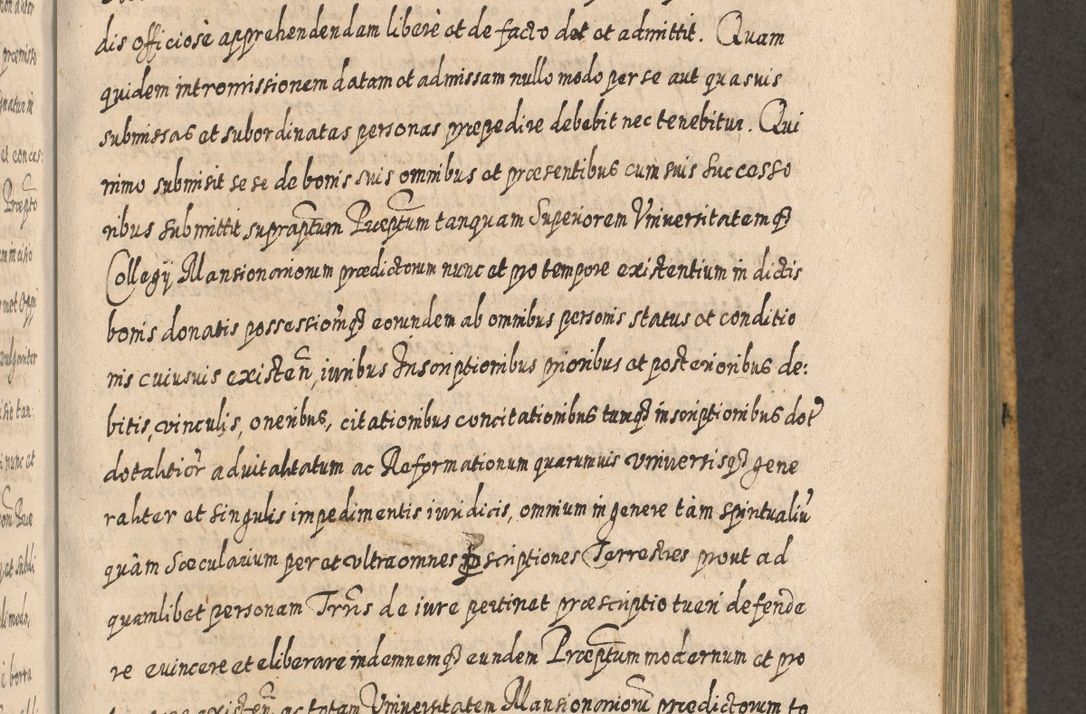 dis officiosè apprehendendam liberè et de facto dat et admittit. Quam
quidem intromissionem datam et admissam nullo modo per se aut quasuis
submissas et subordinatas personas præpedire debebit nec tenebitur. Qui
nimo submisit se se de bonis suis omnibus et præsentibus cum suis successo
ribus submittit supraptum Præptum tanquam Superiorem Vniuersitatemq3
Collegij Mansionariorum prædictorum nunc et pro tempore existentium in dictis
bonis donatis possessionq3 eorundem ab omnibus personis status et conditio
nis cuiusuis existen, iuribus Inscriptionibus prioribus et posterioribus de:
bitis, vinculis, oneribus, citationibus concitationibus tamq3 inscriptionibus dot
dotalitior aduitalitatum ac Reformationum quarumuis vniuersisq3 gene
raliter et singulis impedimentis iuridicis, omnium in genere tàm spiritualiu
quàm sæcularium per et vltra omnes pscriptiones Terrestres prout ad
quamlibet personam Trris de iure pertinet præscriptio tueri defende
re euincere et eliberare indemnemq3 eundem Præptum modernum et pro
existen ac totam Vniuersitatem Mansionarioru prædictorum to